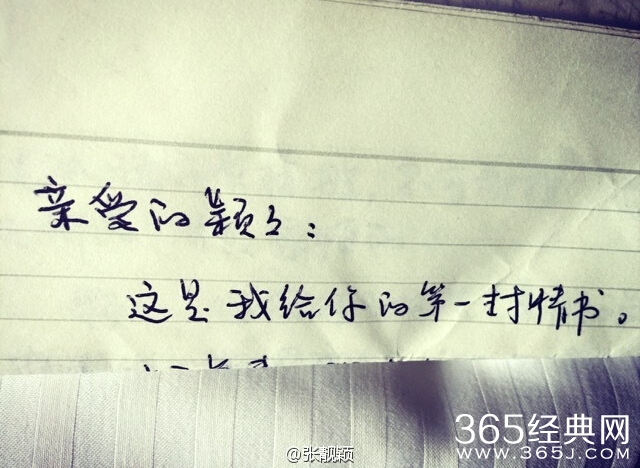 亲爱的颖々:
这是我给你的第一封情书。
@张靓颖
365经典网
WWW.365J.COM